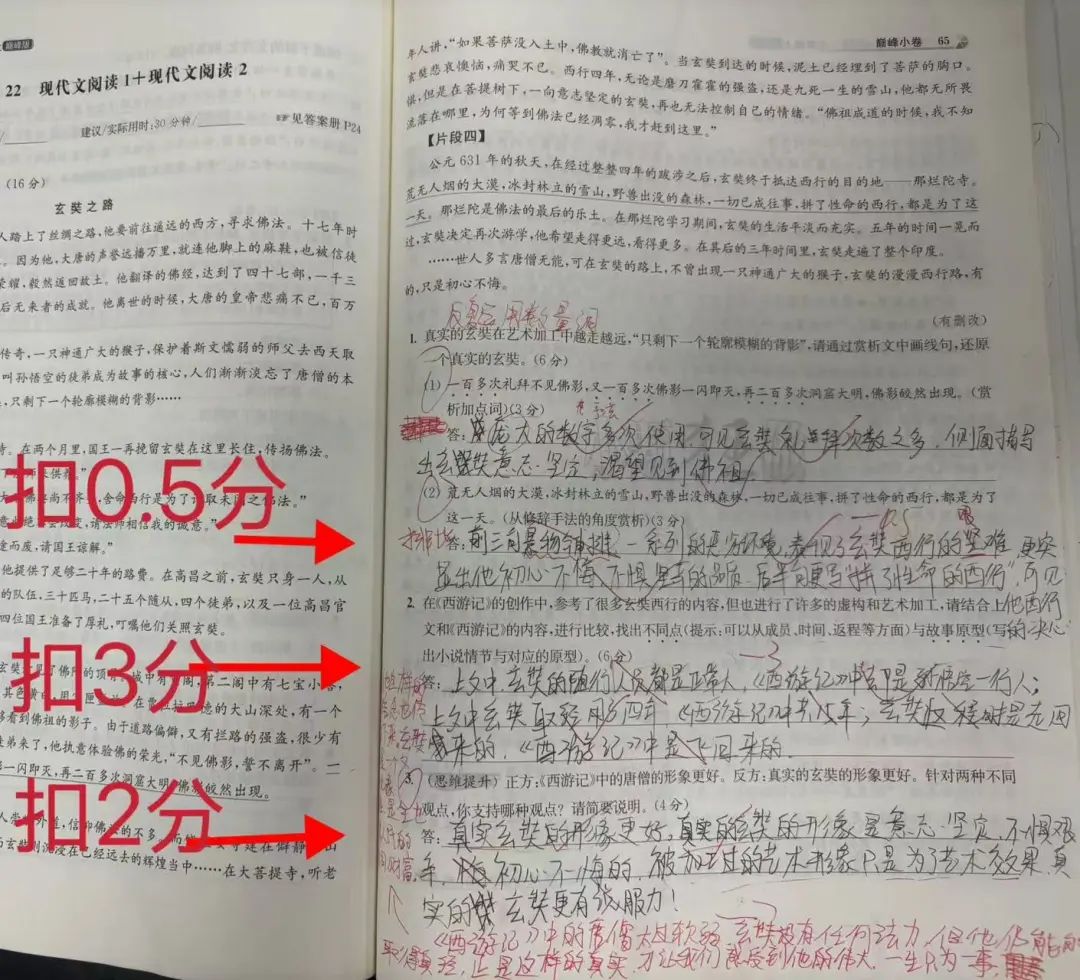 巅峰版
22 现代文阅读1+现代文阅读2
建议/实际用时:30分钟/
☞见答案册P24
(16分)
玄奘之路
人踏上了丝绸之路,他要前往遥远的西方,寻求佛法。十七年时
。因为他,大唐的声誉远播万里,就连他脚上的麻鞋,也被信徒
荣耀,毅然返回故土。他翻译的佛经,达到了四十七部,一千三
后无来者的成就。他离世的时候,大唐的皇帝悲痛不已,百万
传奇,一只神通广大的猴子,保护着斯文懦弱的师父去西天取
叫孙悟空的徒弟成为故事的核心,人们渐渐淡忘了唐僧的本
,只剩下一个轮廓模糊的背影……
寺。在两个月里,国王一再挽留玄奘在这里长住,传扬佛法。
扣0.5分
途而废,请国王谅解。”
他提供了足够二十年的路费。在高昌之前,玄奘只身一人,从
的队伍,三十匹马,二十五个随从,四个徒弟,以及一位高昌官
四位国王准备了厚礼,叮嘱他们关照玄奘。
扣3分
够看到佛祖的影子。由于道路偏僻,又有拦路的强盗,很少有
徒弟来了,他执意体验佛的荣光,“不见佛影,誓不离开”。一
影一闪即灭,再二百多次洞窟大明,佛影皎然出现。
扣2分
而玄奘则沉浸在已经远去的辉煌当中……在大菩提寺,听老
巅峰小卷 65
年人讲,“如果菩萨没入土中,佛教就消亡了”。当玄奘到达的时候,泥土已经埋到了菩萨的胸口。
玄奘悲哀懊恼,痛哭不已。西行四年,无论是磨刀霍霍的强盗,还是九死一生的雪山,他都无所畏
惧,但是在菩提树下,一向意志坚定的玄奘,再也无法控制自己的情绪。“佛祖成道的时候,我不知
流落在哪里,为何等到佛法已经凋零,我才赶到这里。”
【片段四】
公元631年的秋天,在经过整整四年的跋涉之后,玄奘终于抵达西行的目的地——那烂陀寺。
荒无人烟的大漠,冰封林立的雪山,野兽出没的森林,一切已成往事,拼了性命的西行,都是为了这
一天。那烂陀是佛法的最后的乐土。在那烂陀学习期间,玄奘的生活平淡而充实。五年的时间一晃而
过,玄奘决定再次游学,他希望走得更远,看得更多。在其后的三年时间里,玄奘走遍了整个印度。
……世人多言唐僧无能,可在玄奘的路上,不曾出现一只神通广大的猴子,玄奘的漫漫西行路,有
的,只是初心不悔。
(有删改)
反复运用数量词
1. 真实的玄奘在艺术加工中越走越远,“只剩下一个轮廓模糊的背影”,请通过赏析文中画线句,还原
一个真实的玄奘。(6分)
(1) 一百多次礼拜不见佛影,又一百多次佛影一闪即灭,再二百多次洞窟大明,佛影皎然出现。(赏
析加点词)(3分)
答:庞大的数字多次使用,可见玄奘礼拜次数之多,侧面描写
出玄奘意志坚定,渴望见到佛祖
(2) 荒无人烟的大漠,冰封林立的雪山,野兽出没的森林,一切已成往事,拼了性命的西行,都是为了
这一天。(从修辞手法的角度赏析)(3分)
-0.5
排比
答:前三句景物铺排一系列的恶劣环境,表现了玄奘西行的艰难,更突
显出他初心不悔、不惧艰辛的品质,后半句更写“拼了性命的西行”,可见
他西行
的决心
2. 在《西游记》的创作中,参考了很多玄奘西行的内容,但也进行了许多的虚构和艺术加工,请结合上
文和《西游记》的内容,进行比较,找出不同点(提示:可以从成员、时间、返程等方面)与故事原型(写
出小说情节与对应的原型)。(6分)
-3
答:上文中玄奘的随行人员都是正常人,《西游记》中却是孙悟空一行人;
上文中玄奘取经用了四年,《西游记》中共15年;玄奘返程时是走回
来的,《西游记》中是飞回来的
3. (思维提升) 正方:《西游记》中的唐僧的形象更好。反方:真实的玄奘的形象更好。针对两种不同
观点,你支持哪种观点?请简要说明。(4分)
答:真实玄奘的形象更好,真实的玄奘的形象是意志坚定、不惧艰
辛、初心不悔的,被加工过的艺术形象只是为了艺术效果,真
实的玄奘更有说服力!
《西游记》中的唐僧太过软弱,玄奘没有任何法力,但他依然能
取得真经,正是这样的真实,才让我们感受到他的伟大,一生只为一事